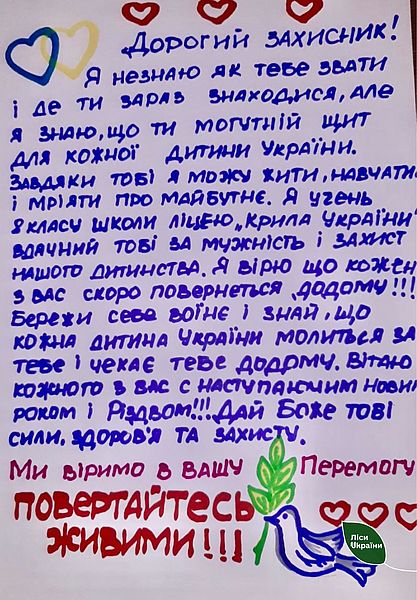 Дорогий захисник!
Я незнаю як тебе звати
і де ти зараз знаходися, але
я знаю, що ти могутній щит
для кожної дитини України.
Завдяки тобі я можу жити, навчати
і мріяти про майбутнє. Я учень
8 класу школи ліцею „Крила України"
вдячний тобі за мужність і захист
нашого дитинства. Я вірю що кожен
з вас скоро повернеться додому!!!
Бережи себе воїне і знай, що
кожна дитина України молиться за
тебе і чекає тебе додому. Вітаю
кожного з вас с наступаючим новим
роком і Різдвом!!! Дай Боже тобі
сили, здоров'я та захисту.
Ми віримо в вашу Перемогу
Повертайтесь
живими!!!
Ліси
України